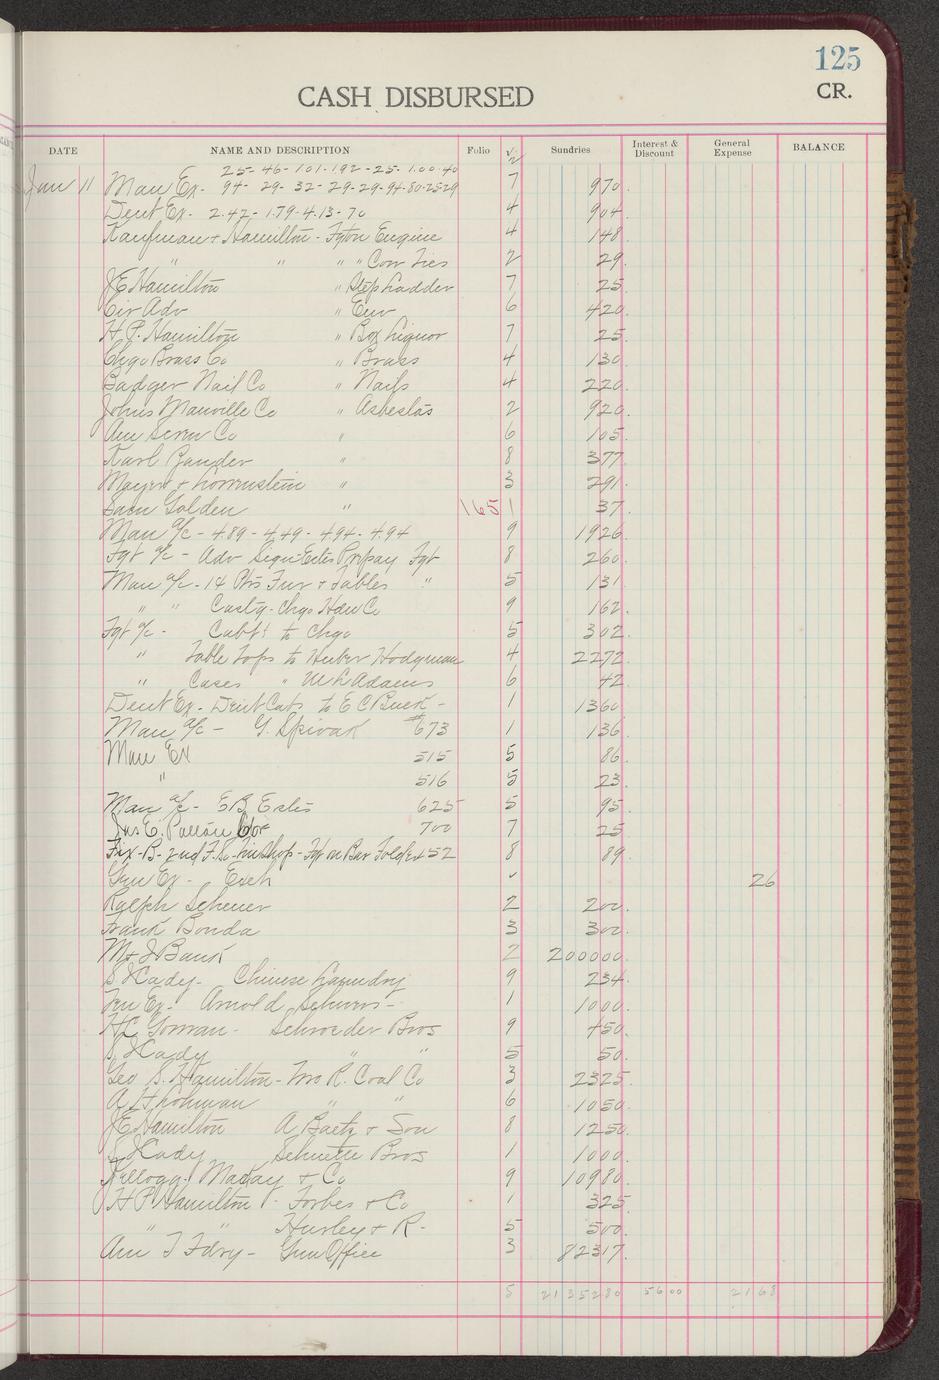 125
CASH DISBURSED CR.
DATE NAME AND DESCRIPTION Folio √ Sundries Interest & Discount General Expense BALANCE
2
25-46-101-192-25-1.00-40
Jan 11 Man Ex- 94-29-32-29-29-94-80-25-29 7 970.
Dent Ex- 2.42-1.79-4.13-70 4 904.
Kaufman & Hamilton - Fgt on Engine 4 148.
" " " " Cow Ties 2 29.
JE Hamilton " Step Ladder 7 25.
Cir Adv " Env 6 420.
H.P. Hamilton " Box Liquor 7 25.
Chgo Brass Co " Brass 4 130.
Badger Nail Co " Nails 4 220.
Johns Manville Co " Asbestos 2 920.
Am Screw Co " 6 105.
Karl Zander " 8 377.
Mayer & " 3 291.
Sam Golden " 165 1 37.
Man a/c - 489-449-494-494 9 1926.
Fgt a/c - Adv Prepay Fgt 8 260.
Man a/c - 14 Fur & Tables " 5 131.
" " Castg - Chgo Hdw Co 9 162.
Fgt a/c - Cabts to Chgo 5 302.
" Table Tops to Huber Hodgman 4 2272.
" Cases " W L Adams 6 42.
Dent Ex - Dent Cabs to E C Buck - 1 1360.
Man a/c - G. Spivak #673 1 136.
Man Ex 515 5 86.
" 516 5 23.
Man a/c - E B Estes 625 5 95.
Jas E. Cor 700 7 25.
Fix-B- 2nd F.S. - Fgt on Bar 452 8 89.
Gen Ex - Exch √ 26
Ralph Scheuer 2 200.
Frank Bonda 3 300.
M & J Bank 2 200000.
S. Cady - Chinese Laundry 9 234.
Ex - Arnold 1 1000.
HC Gorman - Schroeder Bros 9 450.
S. Cady " " 5 50.
Geo S. Hamilton - Two R. Coal Co 3 2325.
A H " " 6 1050.
JE Hamilton A Baetz & Son 8 1250.
S. Cady Schuette Bros 1 1000.
Kellogg Mackay & Co 9 10980.
H P Hamilton - Forbes & Co 1 325.
" " Hurley & R - 5 500.
Am T Fdry - Gen Office 3 82317.
5 2135280 5600 2168